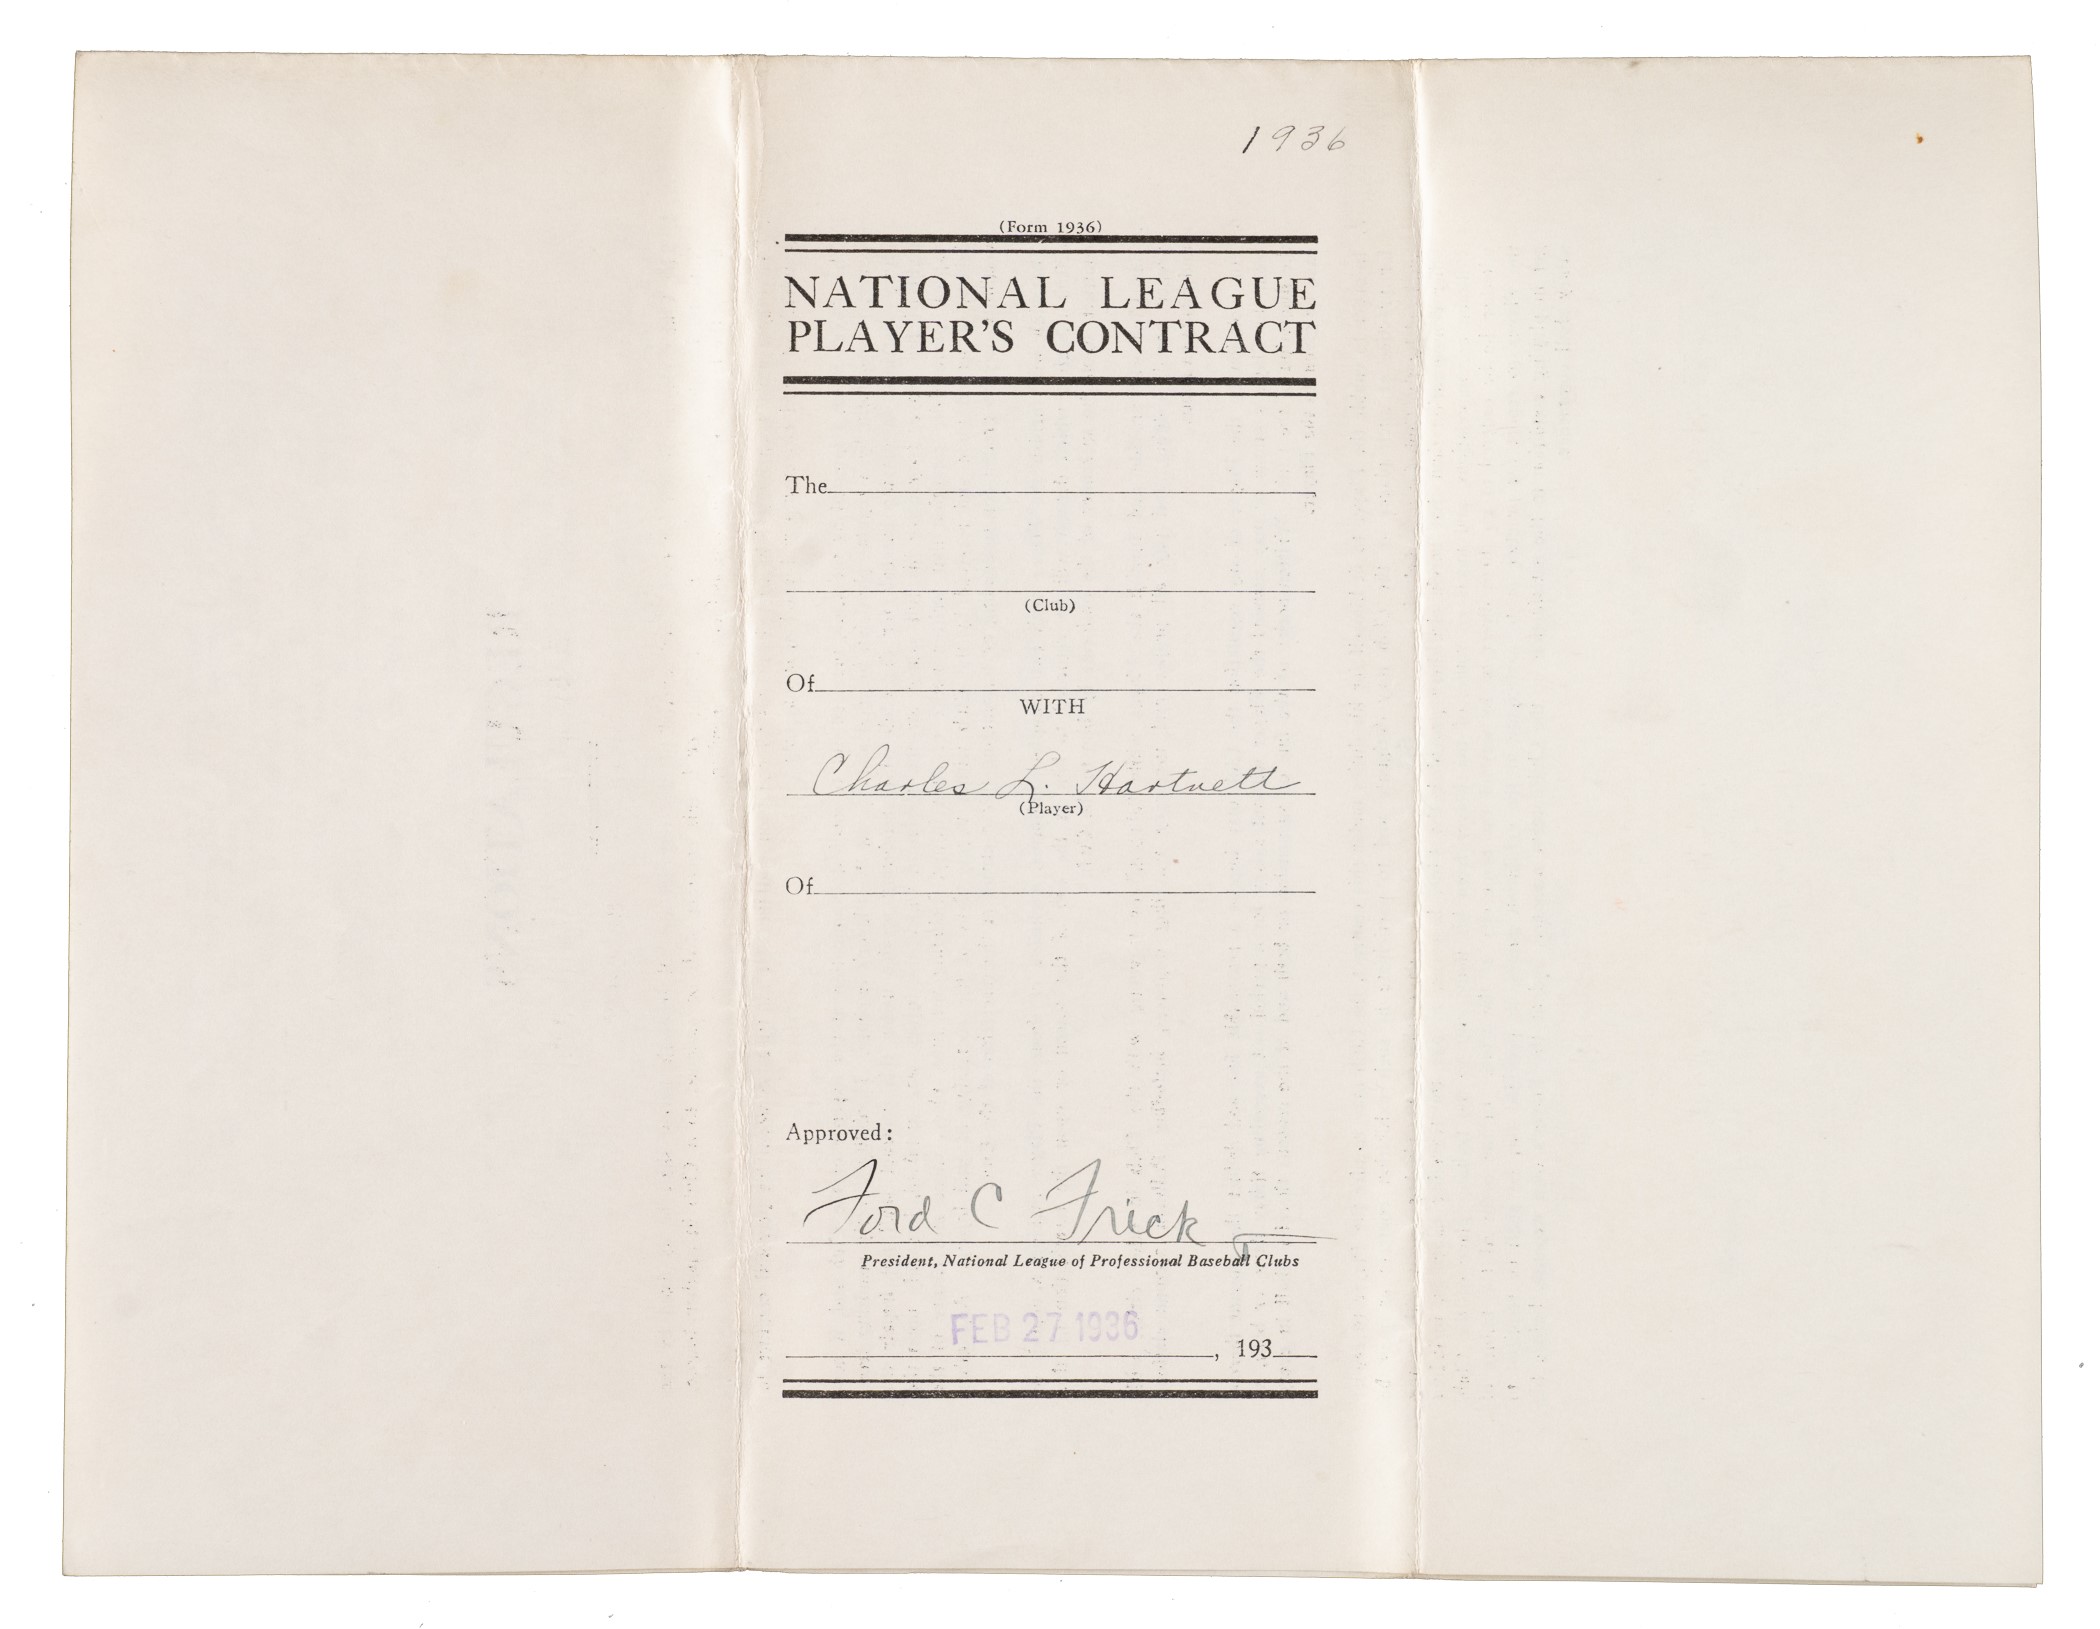 1936
(Form 1936)
NATIONAL LEAGUE
PLAYER'S CONTRACT
The
(Club)
Of
WITH
Charles L. Hartnett
(Player)
Of
Approved:
Ford C Frick
President, National League of Professional Baseball Clubs
FEB 27 1936
, 193